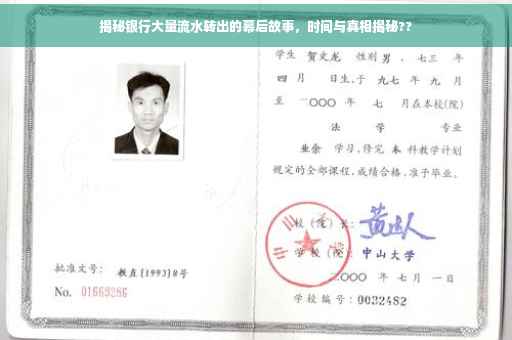 揭秘银行大量流水转出的幕后故事，时间与真相揭秘??
学生 贺文龙 性别 男，七三 年
四 月 日生，于 九七 年 九 月
至 二〇〇〇 年 七 月在本校(院)
法 学 专业
业余 学习，修完 本 科教学计划
规定的全部课程，成绩合格，准予毕业。
校(院)长：
学校(院)：中山大学
批准文号：教直(1993)8号
二〇〇〇 年 七 月 一 日
No. 01669286
学校编号：0032482